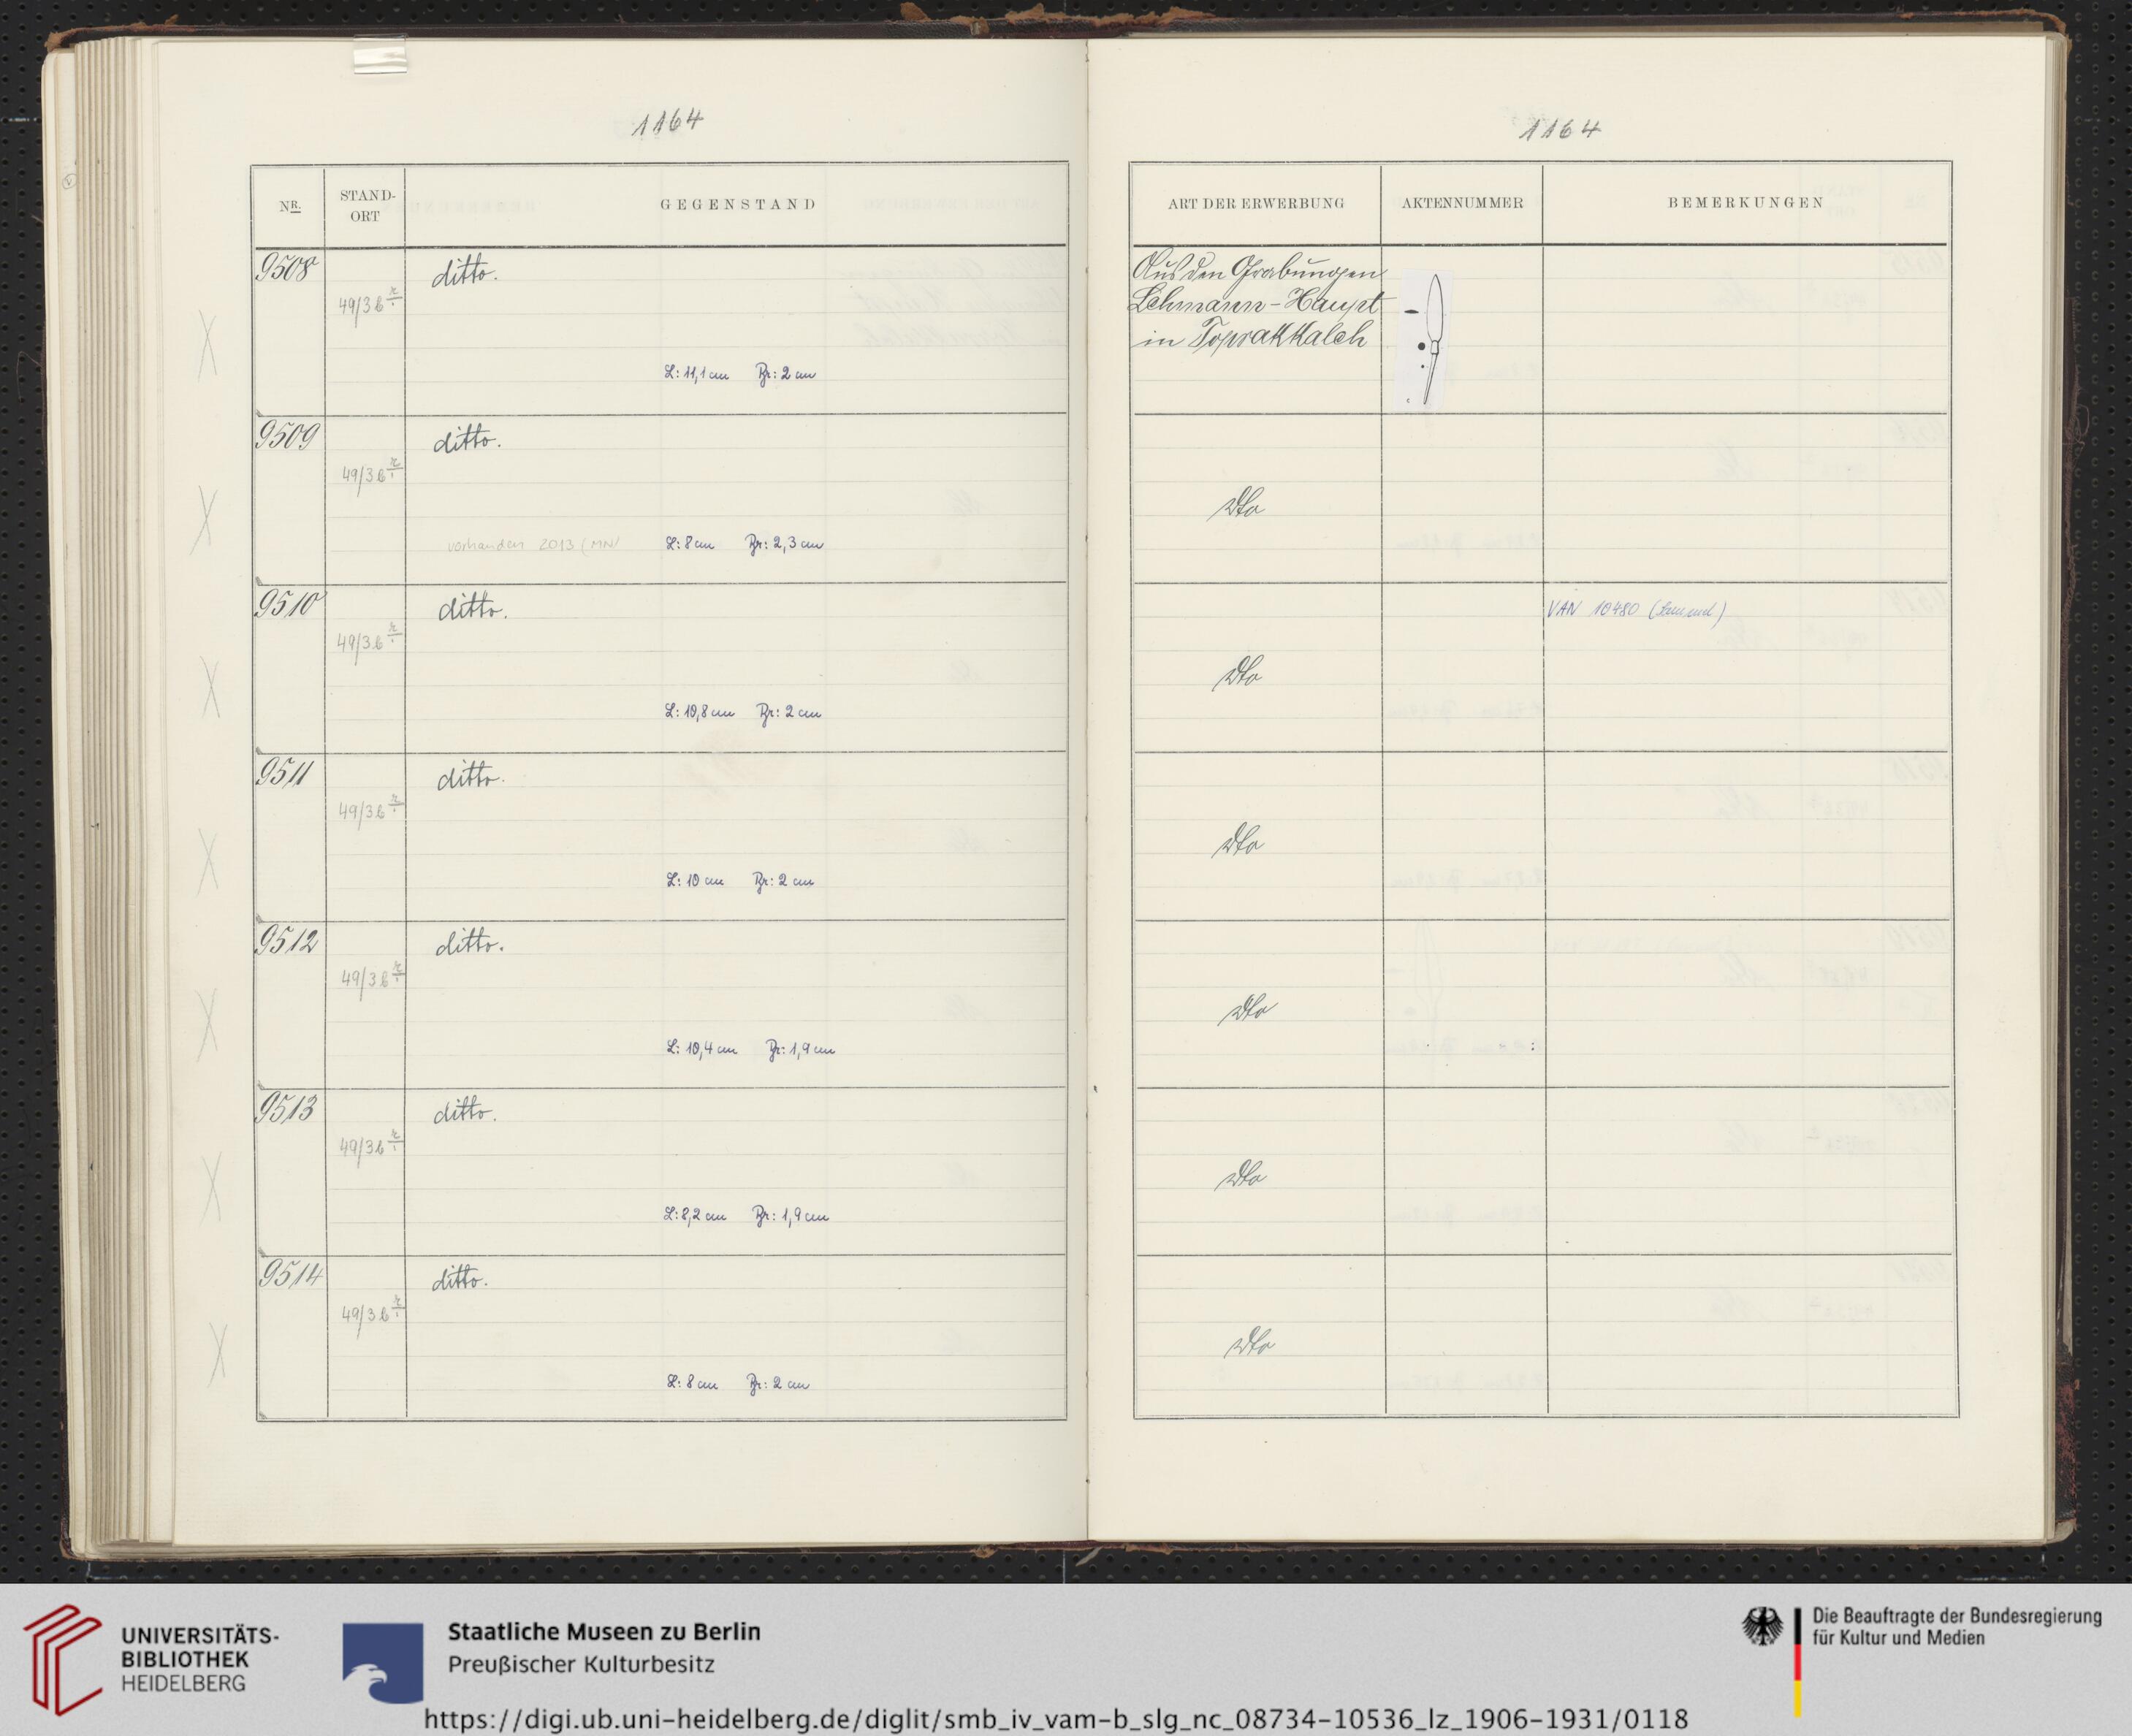 1164
NR.
STAND-
ORT
GEGENSTAND
9508
49/3b
ditto.
L: 11,1 cm Br: 2 cm
9509
49/3b
ditto.
vorhanden 2013 (MN)
L: 8 cm Br: 2,3 cm
9510
49/3b
ditto.
L: 10,8 cm Br: 2 cm
9511
49/3b
ditto.
L: 10 cm Br: 2 cm
9512
49/3b
ditto.
L: 10,4 cm Br: 1,9 cm
9513
49/3b
ditto.
L: 8,2 cm Br: 1,9 cm
9514
49/3b
ditto.
L: 8 cm Br: 2 cm
1164
ART DER ERWERBUNG
AKTENNUMMER
BEMERKUNGEN
Aus den Grabungen
Lehmann-Haupt
in Toprakkaleh
dto
VAN 10480
dto
dto
dto
dto
dto
UNIVERSITÄTS-
BIBLIOTHEK
HEIDELBERG
Staatliche Museen zu Berlin
Preußischer Kulturbesitz
Die Beauftragte der Bundesregierung
für Kultur und Medien
https://digi.ub.uni-heidelberg.de/diglit/smb_iv_vam-b_slg_nc_08734-10536_lz_1906-1931/0118